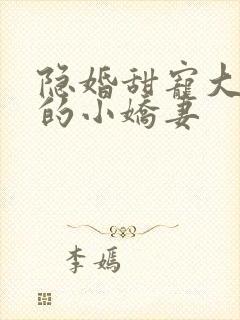 隐婚甜寵大
的小嬌妻
李嫣